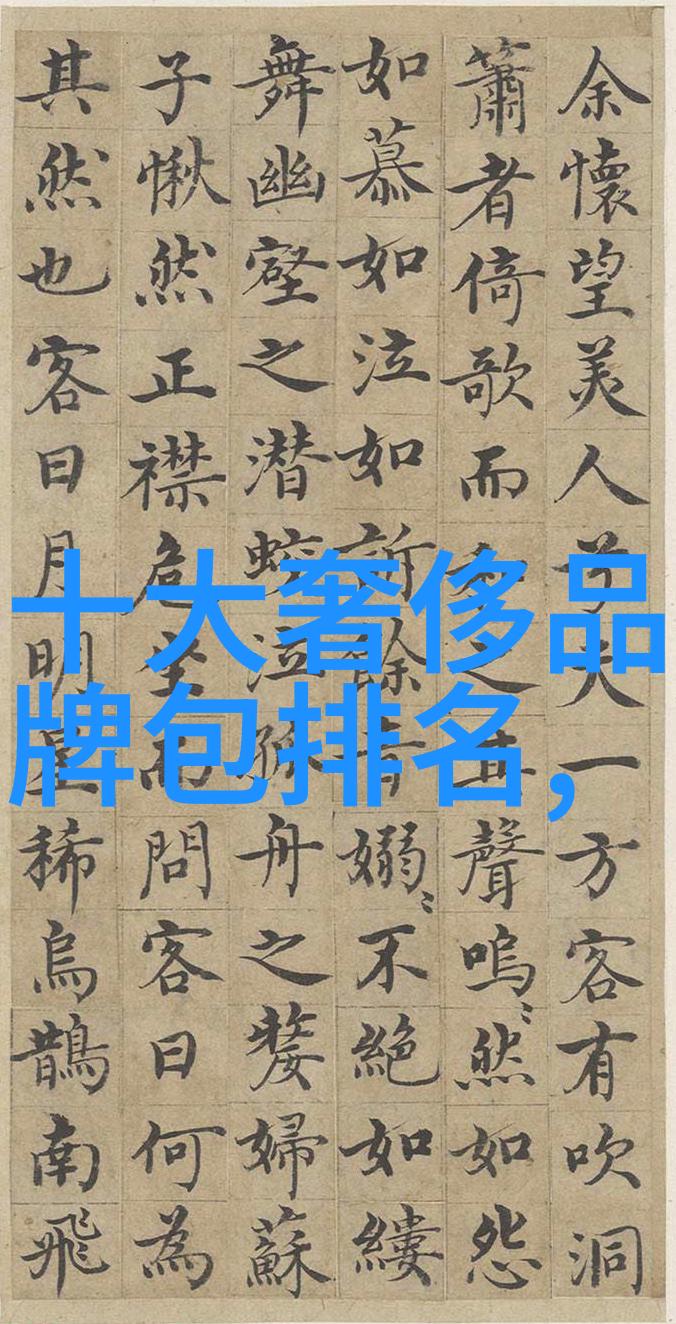 余懷望美人兮天一方客有吹洞
簫者倚歌而和之其聲嗚〻然如怨
如慕如泣如訴餘音嫋〻不絶如縷
舞幽壑之潜蛟泣孤舟之嫠婦蘇
子愀然正襟危坐而問客曰何為
其然也客曰月明星稀烏鵲南飛
十大奢侈品
牌包排名,